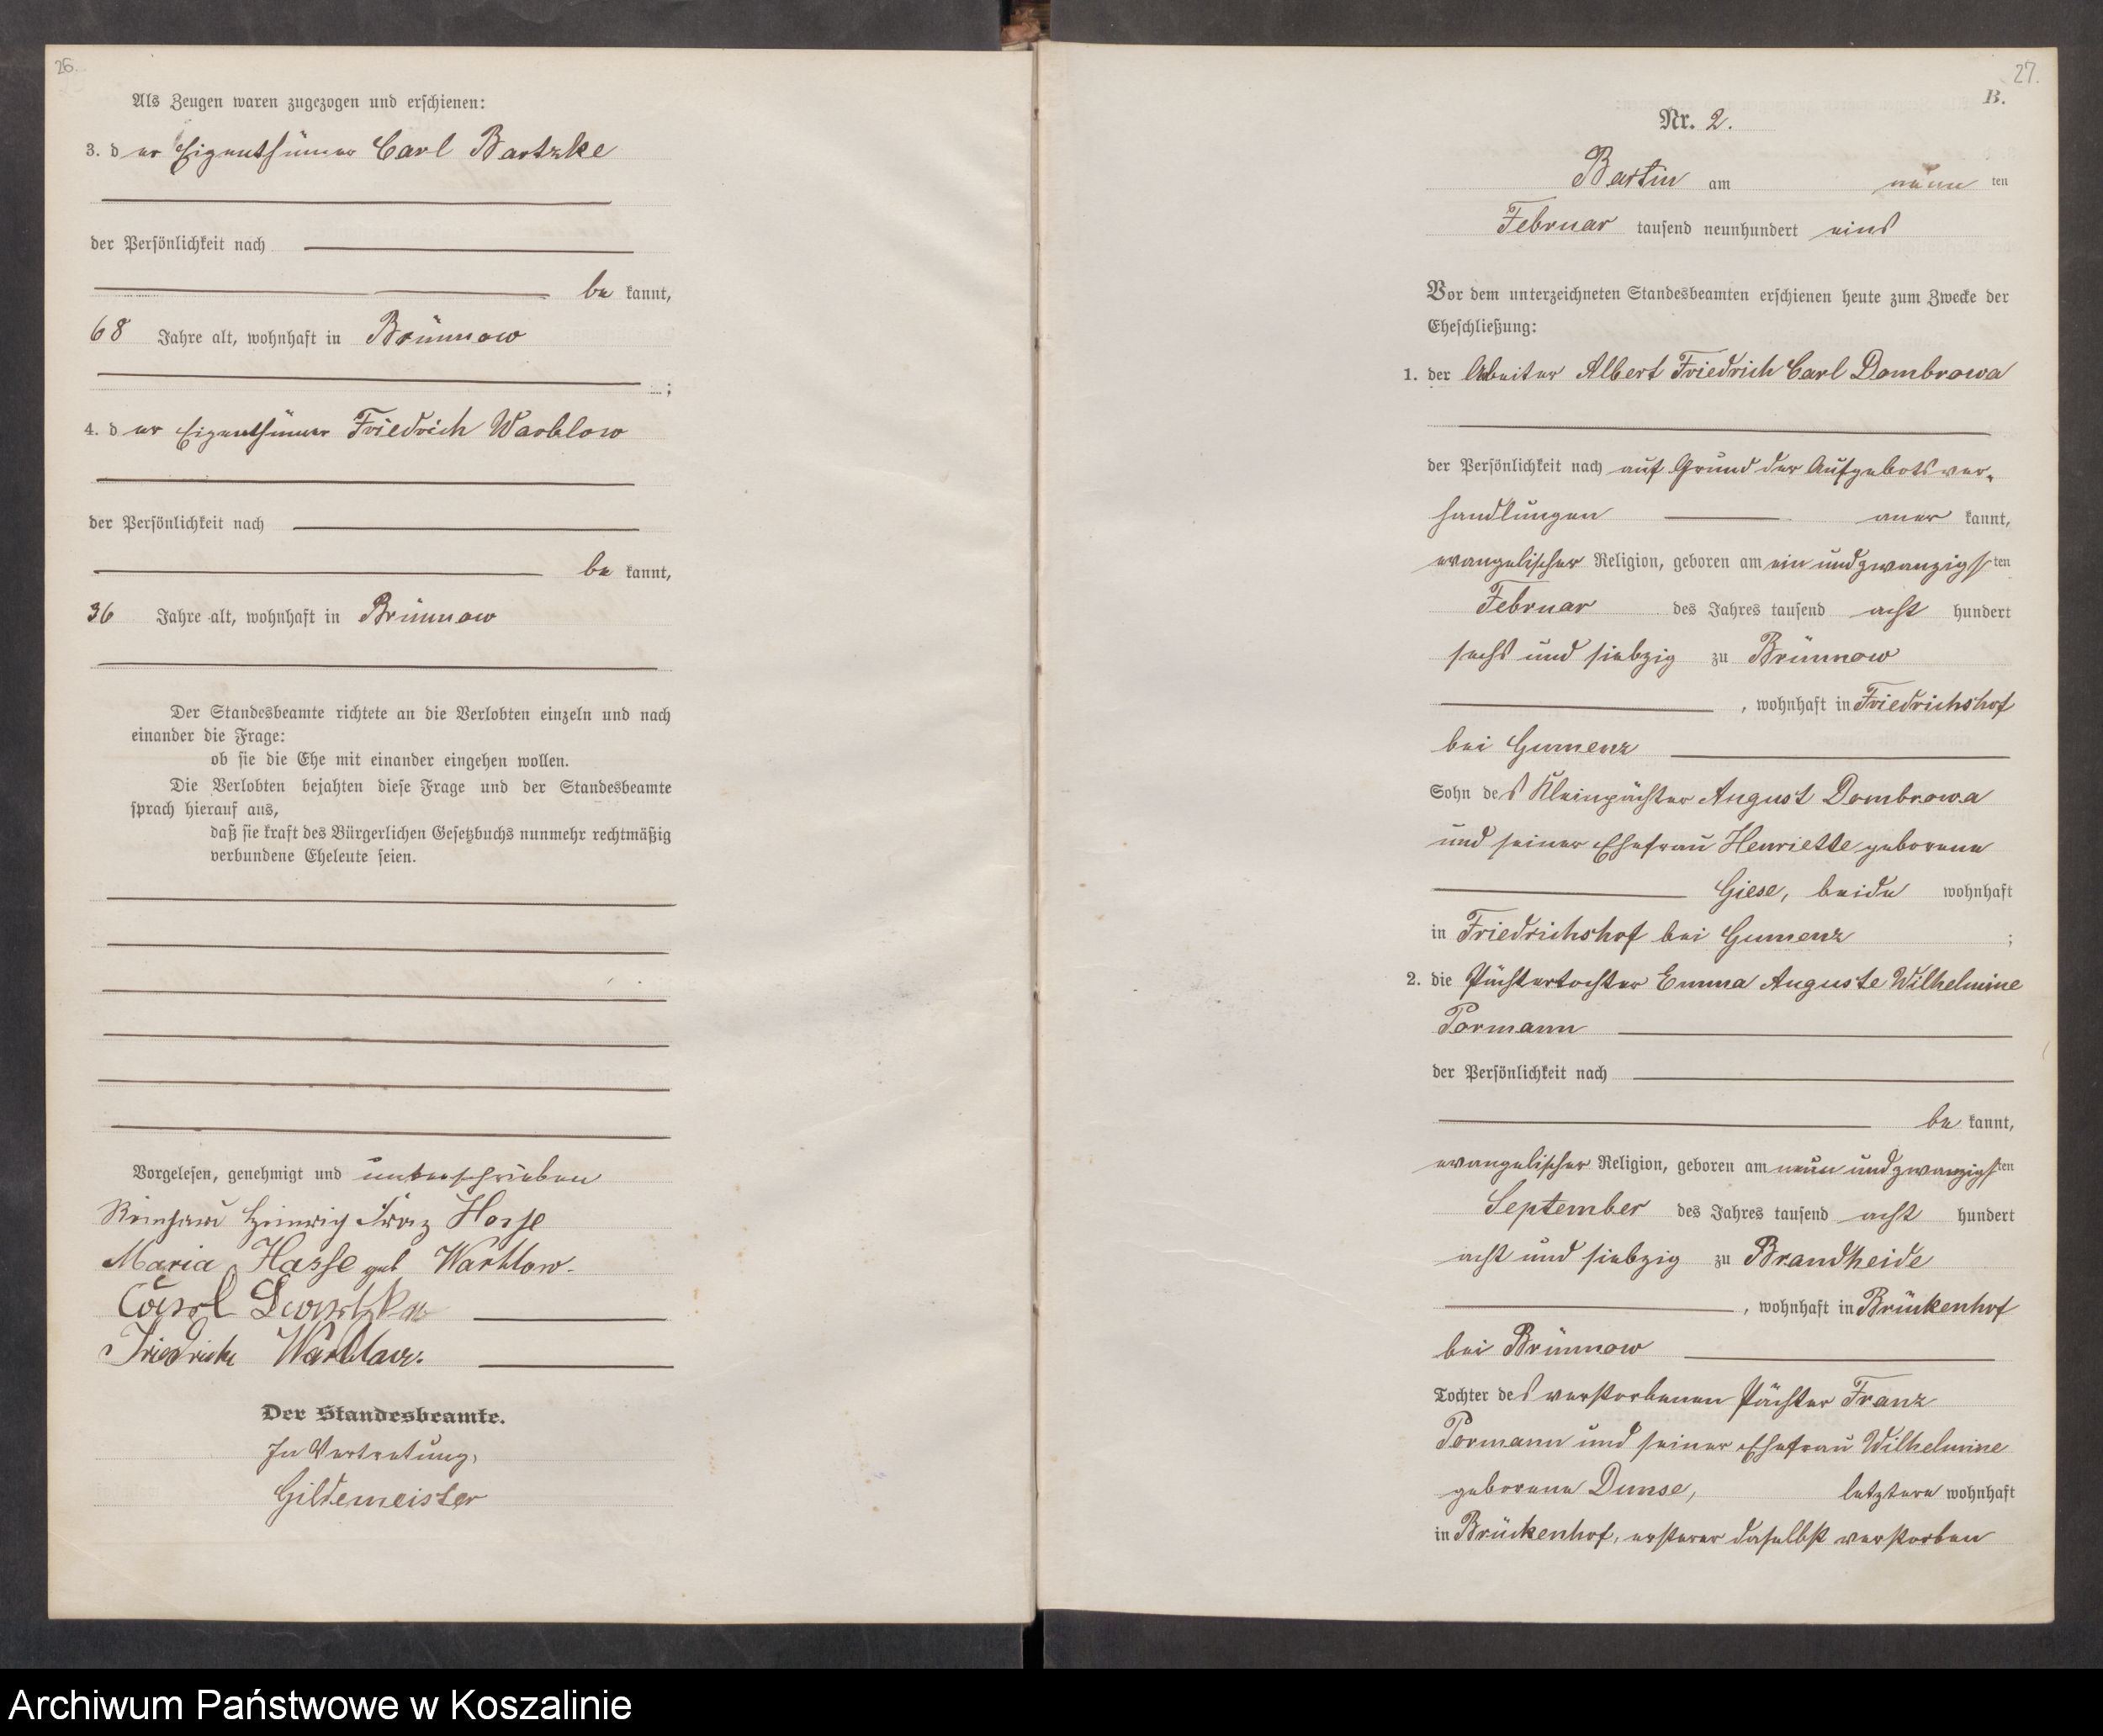 26.
Als Zeugen waren zugezogen und erschienen:
3. der Eigenthümer Carl Bartzke
der Persönlichkeit nach
be kannt,
68 Jahre alt, wohnhaft in Brünnow
;
4. der Eigenthümer Friedrich Warblow
der Persönlichkeit nach
be kannt,
36 Jahre alt, wohnhaft in Brünnow
Der Standesbeamte richtete an die Verlobten einzeln und nach
einander die Frage:
ob sie die Ehe mit einander eingehen wollen.
Die Verlobten bejahten diese Frage und der Standesbeamte
sprach hierauf aus,
daß sie kraft des Bürgerlichen Gesetzbuchs nunmehr rechtmäßig
verbundene Eheleute seien.
Vorgelesen, genehmigt und unterschrieben
Heinrich Franz Hasse
Maria Hasse geb Warblow.
Carl Bartzke
Friedrich Warblow.
Der Standesbeamte.
In Vertretung,
Gildemeister
27.
B.
Nr. 2.
Bartin am neun ten
Februar tausend neunhundert eins
Vor dem unterzeichneten Standesbeamten erschienen heute zum Zwecke der
Eheschließung:
1. der Arbeiter Albert Friedrich Carl Dombrowa
der Persönlichkeit nach auf Grund der Aufgebotsver-
handlungen aner kannt,
evangelischer Religion, geboren am ein und zwanzigsten
Februar des Jahres tausend acht hundert
sechs und siebzig zu Brünnow
, wohnhaft in Friedrichshof
bei Gumenz
Sohn des Kleinpächter August Dombrowa
und seiner Ehefrau Henriette geborene
Giese, beide wohnhaft
in Friedrichshof bei Gumenz ;
2. die Pächtertochter Emma Auguste Wilhelmine
Pormann
der Persönlichkeit nach
be kannt,
evangelischer Religion, geboren am neun und zwanzigsten
September des Jahres tausend acht hundert
acht und siebzig zu Brandheide
, wohnhaft in Brückenhof
bei Brünnow
Tochter des verstorbenen Pächter Franz
Pormann und seiner Ehefrau Wilhelmine
geborene Dunse, letztere wohnhaft
in Brückenhof, ersterer daselbst verstorben
Archiwum Państwowe w Koszalinie